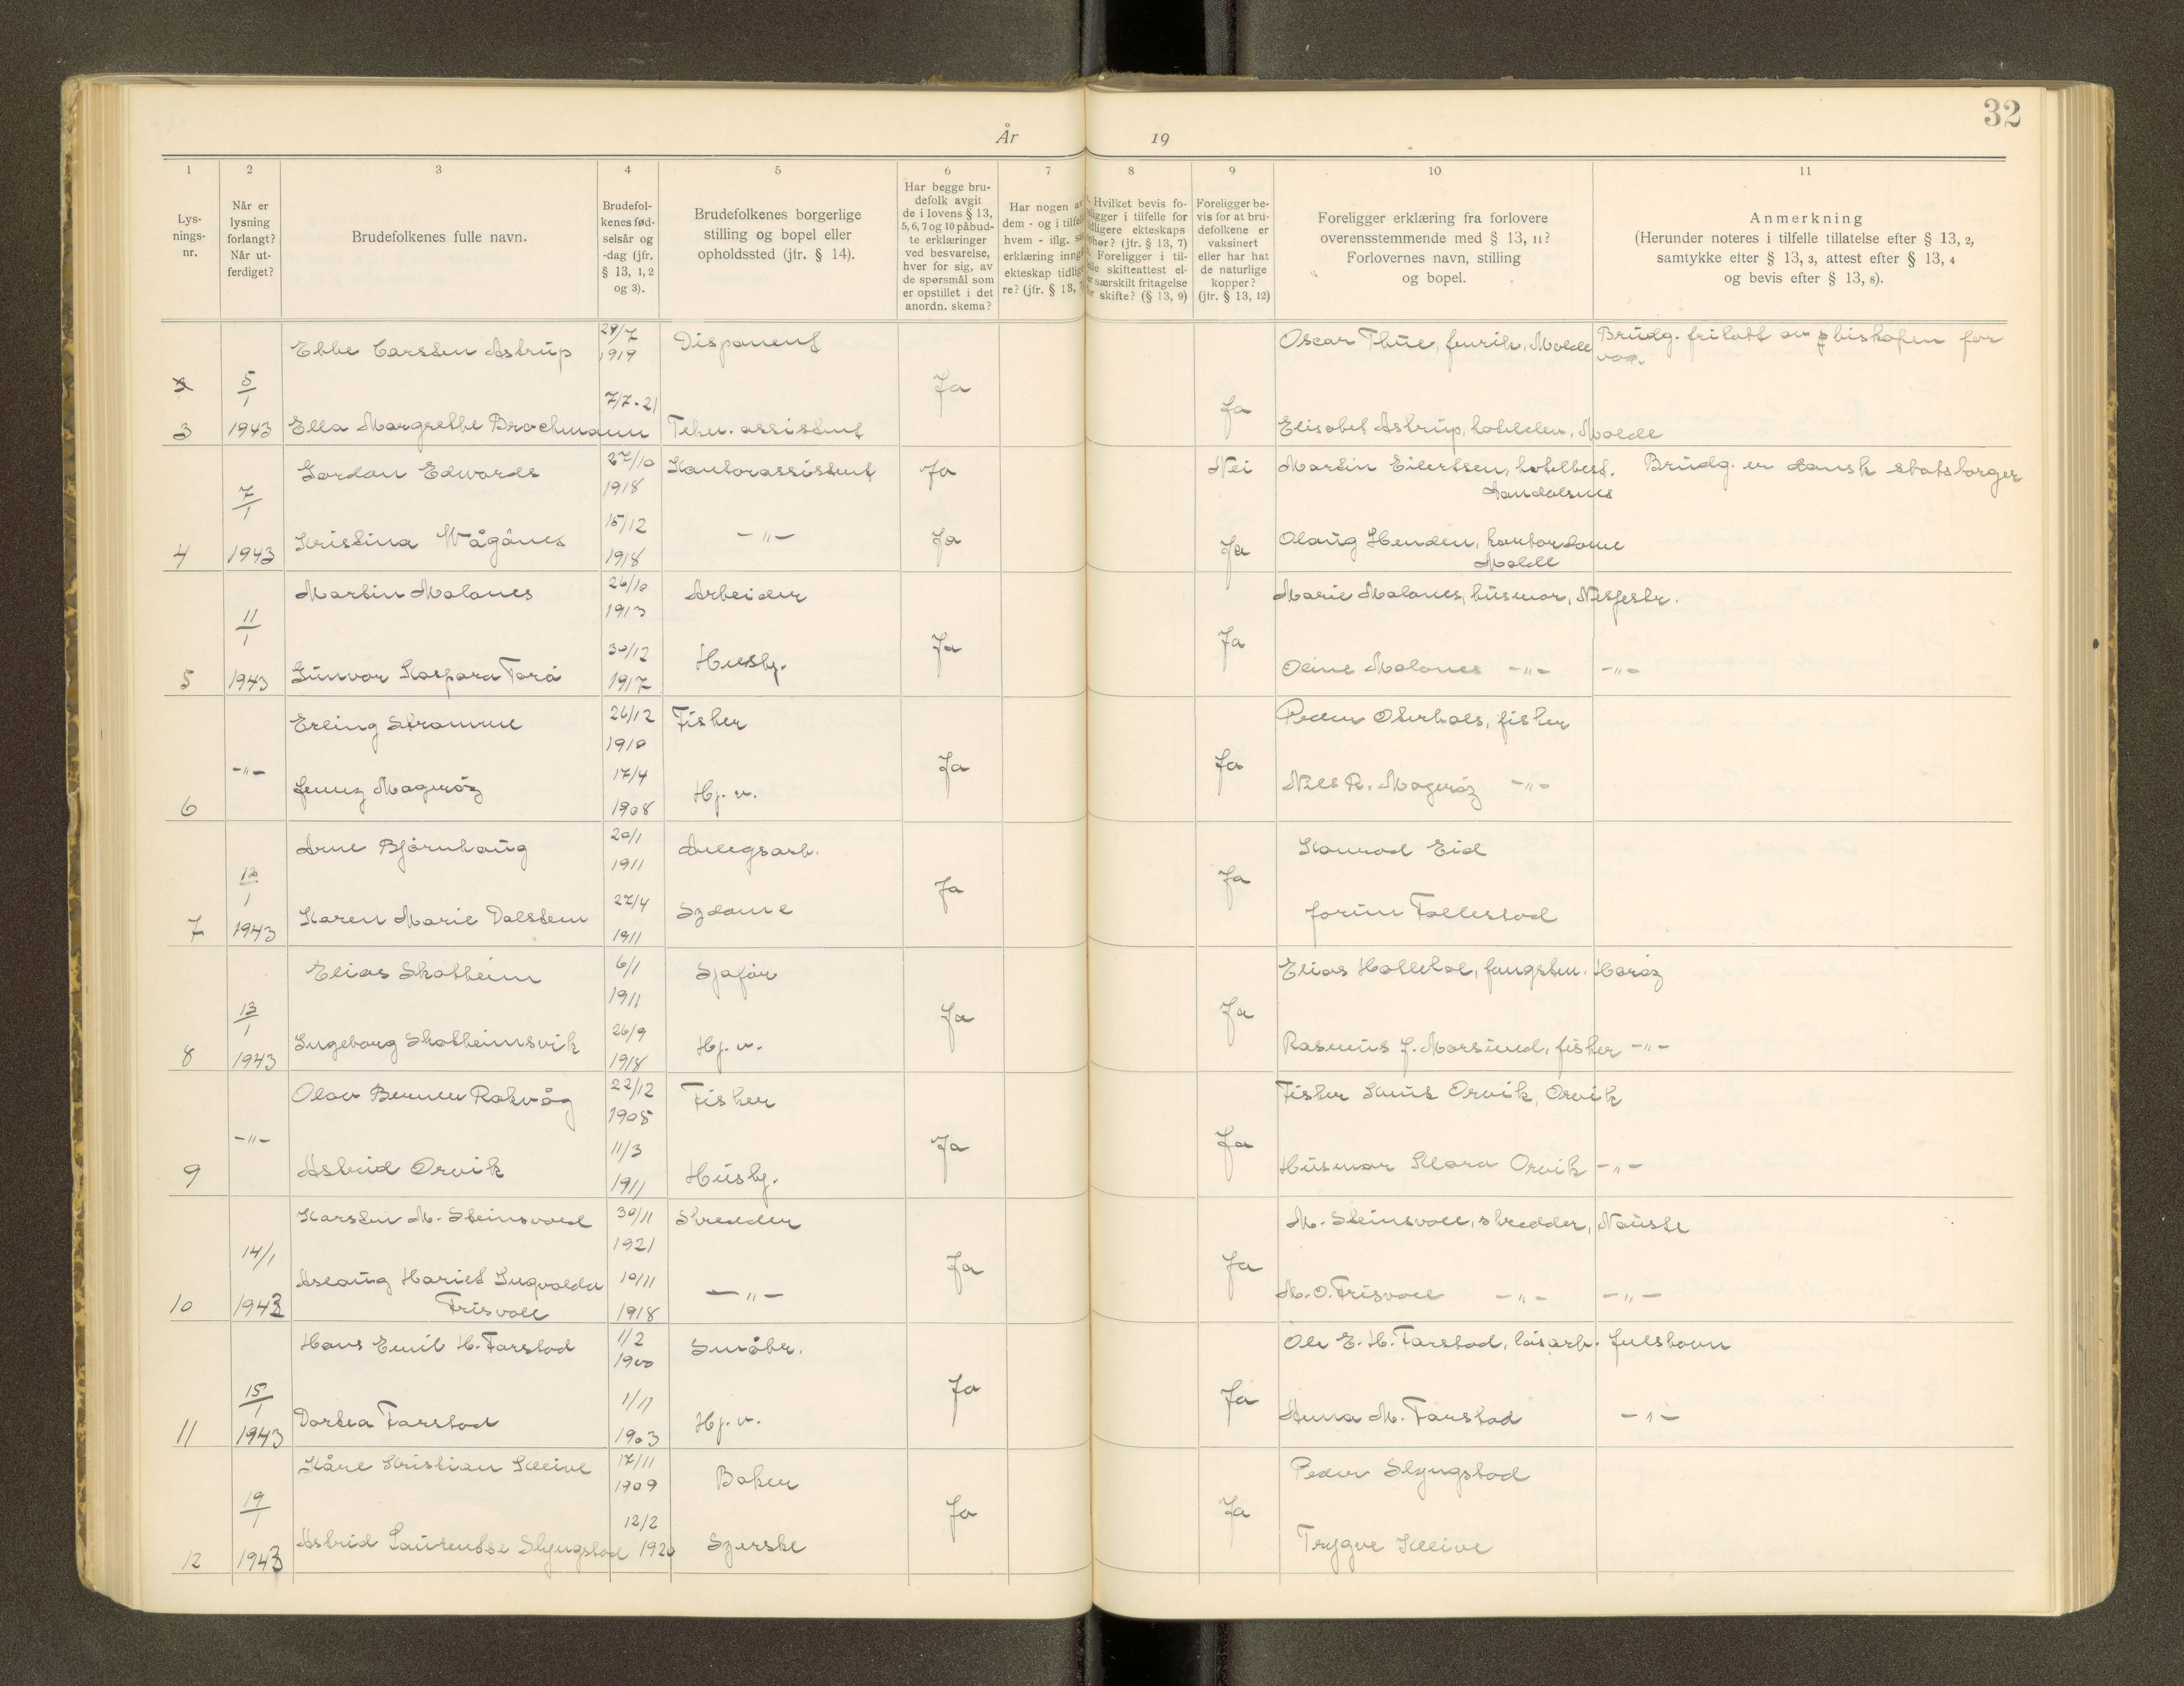 32
År 19
1 2 3 4 5 6 7 8 9 10 11
Lys-
nings-
nr.
Når er
lysning
forlangt?
Når ut-
ferdiget?
Brudefolkenes fulle navn.
Brudefol-
kenes fød-
selsår og
-dag (jfr.
§ 13, 1, 2
og 3).
Brudefolkenes borgerlige
stilling og bopel eller
opholdssted (jfr. § 14).
Har begge bru-
defolk avgit
de i lovens § 13,
5, 6, 7 og 10 påbud-
te erklæringer
ved besvarelse,
hver for sig, av
de spørsmål som
er opstillet i det
anordn. skema?
Har nogen av
dem - og i tilfelle
hvem - iflg.
erklæring inng
ekteskap tidlig
re? (jfr. § 13,
Hvilket bevis fo-
religger i tilfelle for
tidligere ekteskaps
ophør? (jfr. § 13, 7)
Foreligger i til-
felle skifteattest el-
særskilt fritagelse
skifte? (§ 13, 9)
Foreligger be-
vis for at bru-
defolkene er
vaksinert
eller har hat
de naturlige
kopper?
(jfr. § 13, 12)
Foreligger erklæring fra forlovere
overensstemmende med § 13, 11?
Forlovernes navn, stilling
og bopel.
Anmerkning
(Herunder noteres i tilfelle tillatelse efter § 13, 2,
samtykke efter § 13, 3, attest efter § 13, 4
og bevis efter § 13, 8).
3 5/1 1943 Ebbe Carsten Astrup 29/7 1919 Disponent Ja Ja Oscar Thue, fenrik, Molde Brudg. fritatt av biskopen for
Ella Margrethe Brochmann 7/7-21 Tekn. assistent Elisabet Astrup, Molde
4 7/1 1943 Gordon Edwards 27/10 1918 Kontorassistent Ja Nei Martin Eilertsen, hotelbest. Åndalsnes Brudg. er dansk statsborger
Kristina Vågönes 15/12 1918 -"- Ja Ja Olaug Henden, kontordame Molde
5 11/1 1943 Martin Malones 26/10 1913 Arbeider Ja Ja Marie Malones, husmor, Nesjestr.
Gunvor Kaspara Torö 30/12 1917 Husbj. Oline Malones -"- -"-
6 -"- Erling Stromme 26/12 1910 Fisker Ja Ja Peder Oterhals, fisker
Jenny Magerøy 17/4 1908 Hj. v. Nils R. Magerøy -"-
7 12/1 1943 Arne Bjørnhaug 20/1 1911 Anlegsarb. Ja Ja Konrad Eid
Karen Marie Dalsten 27/4 1911 Sydame Jorun Tallestad
8 13/1 1943 Elias Skotheim 6/1 1911 Sjafør Ja Ja Elias Hollehol, fangstm. Harøy
Ingeborg Skotheimsvik 26/9 1918 Hj. v. Rasmus J. Morsund, fisker -"-
9 -"- Olav Berner Rakvåg 22/12 1905 Fisker Ja Ja Fisker Knut Orvik, Orvik
Astrid Orvik 11/3 1911 Husbj. Husmor Klara Orvik -"-
10 14/1 1943 Karsten M. Steinsvoll 30/11 1921 Skredder Ja Ja M. Steinsvoll, skredder, Nauste
Aslaug Hariet Ingvalda Frisvoll 10/11 1918 -"- M. O. Frisvoll -"- -"-
11 15/1 1943 Hans Emil H. Farstad 1/2 1900 Småbr. Ja Ja Ole E. H. Farstad, løsarb. Julshavn
Dortea Farstad 1/11 1903 Hj. v. Anna M. Farstad -"-
12 19/1 1943 Kåre Kristian Kleive 17/11 1909 Baker Ja Ja Peder Slyngstad
Astrid Laurentse Slyngstad 12/2 1920 Syerske Trygve Kleive